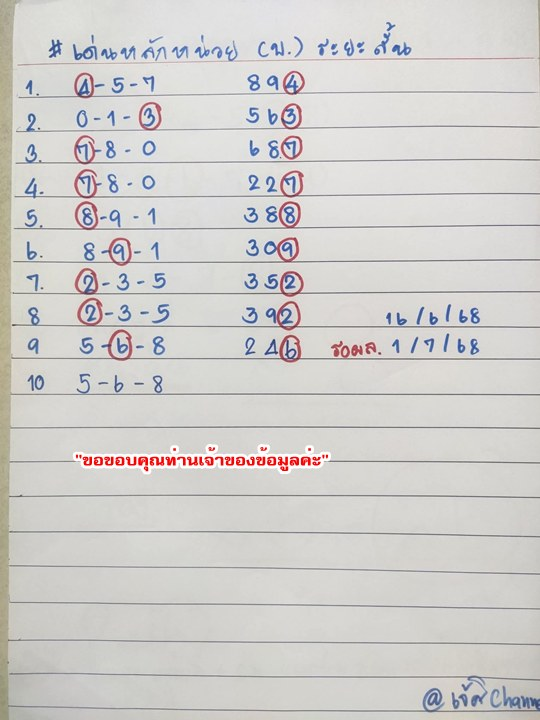 # เด่นหลักหน่วย (บ.) ระยะสั้น
1. 4-5-7 894
2. 0-1-3 563
3. 7-8-0 687
4. 7-8-0 227
5. 8-9-1 388
6. 8-9-1 309
7. 2-3-5 352
8 2-3-5 392 16/6/68
9 5-6-8 246 รอผล. 1/7/68
10 5-6-8
"ขอขอบคุณท่านเจ้าของข้อมูลค่ะ"
@ Chann